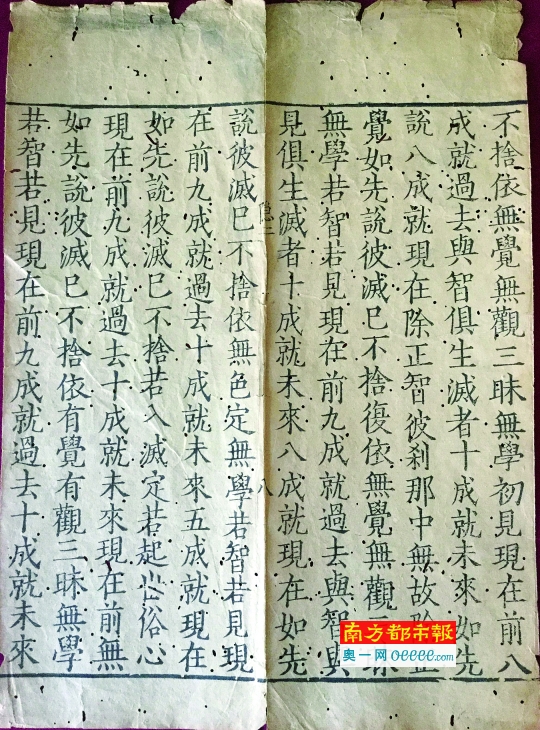 不捨依無覺無觀三昧無學初見現在前八
成就過去與智俱生滅者十成就未來如先
說八成就現在除正智彼刹那中無故
覺如先說彼滅巳不捨復依無覺無觀
無學若智若見現在前九成就過去與智俱
見俱生滅者十成就未來八成就現在如先
隐二
八
說彼滅巳不捨依無色定無學若智若見現
在前九成就過去十成就未來五成就現在
如先說彼滅巳不捨若入滅定若起世俗心
現在前九成就過去十成就未來現在前無
如先說彼滅巳不捨依有覺有觀三昧無學
若智若見現在前九成就過去十成就未來
南方都市報
奥一网 oeeee.com